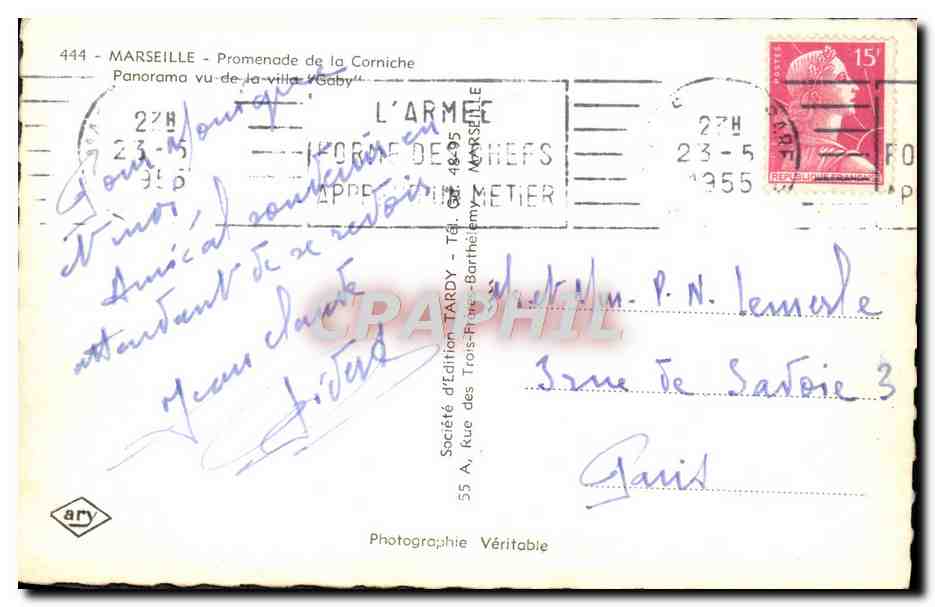 444 - MARSEILLE - Promenade de la Corniche
Panorama vu de la villa "Gaby"
Pour Monique
et moi,
Amical souvenir en
attendant de se revoir
Jean Claude
23H
23-5
1955
L'ARMEE
FORME DES CHEFS
APPREND UN METIER
23H
23-5
1955
GARE
FO
AP
POSTES
15F
REPUBLIQUE FRANÇAISE
Société d'Edition TARDY - Tél. Gar. 48-95
55 A, Rue des Trois-Frères-Barthélemy - MARSEILLE
M. et Mme P. N. Lemerle
3 rue de Savoie 3
Paris
CPAPHIL
ary
Photographie Véritable